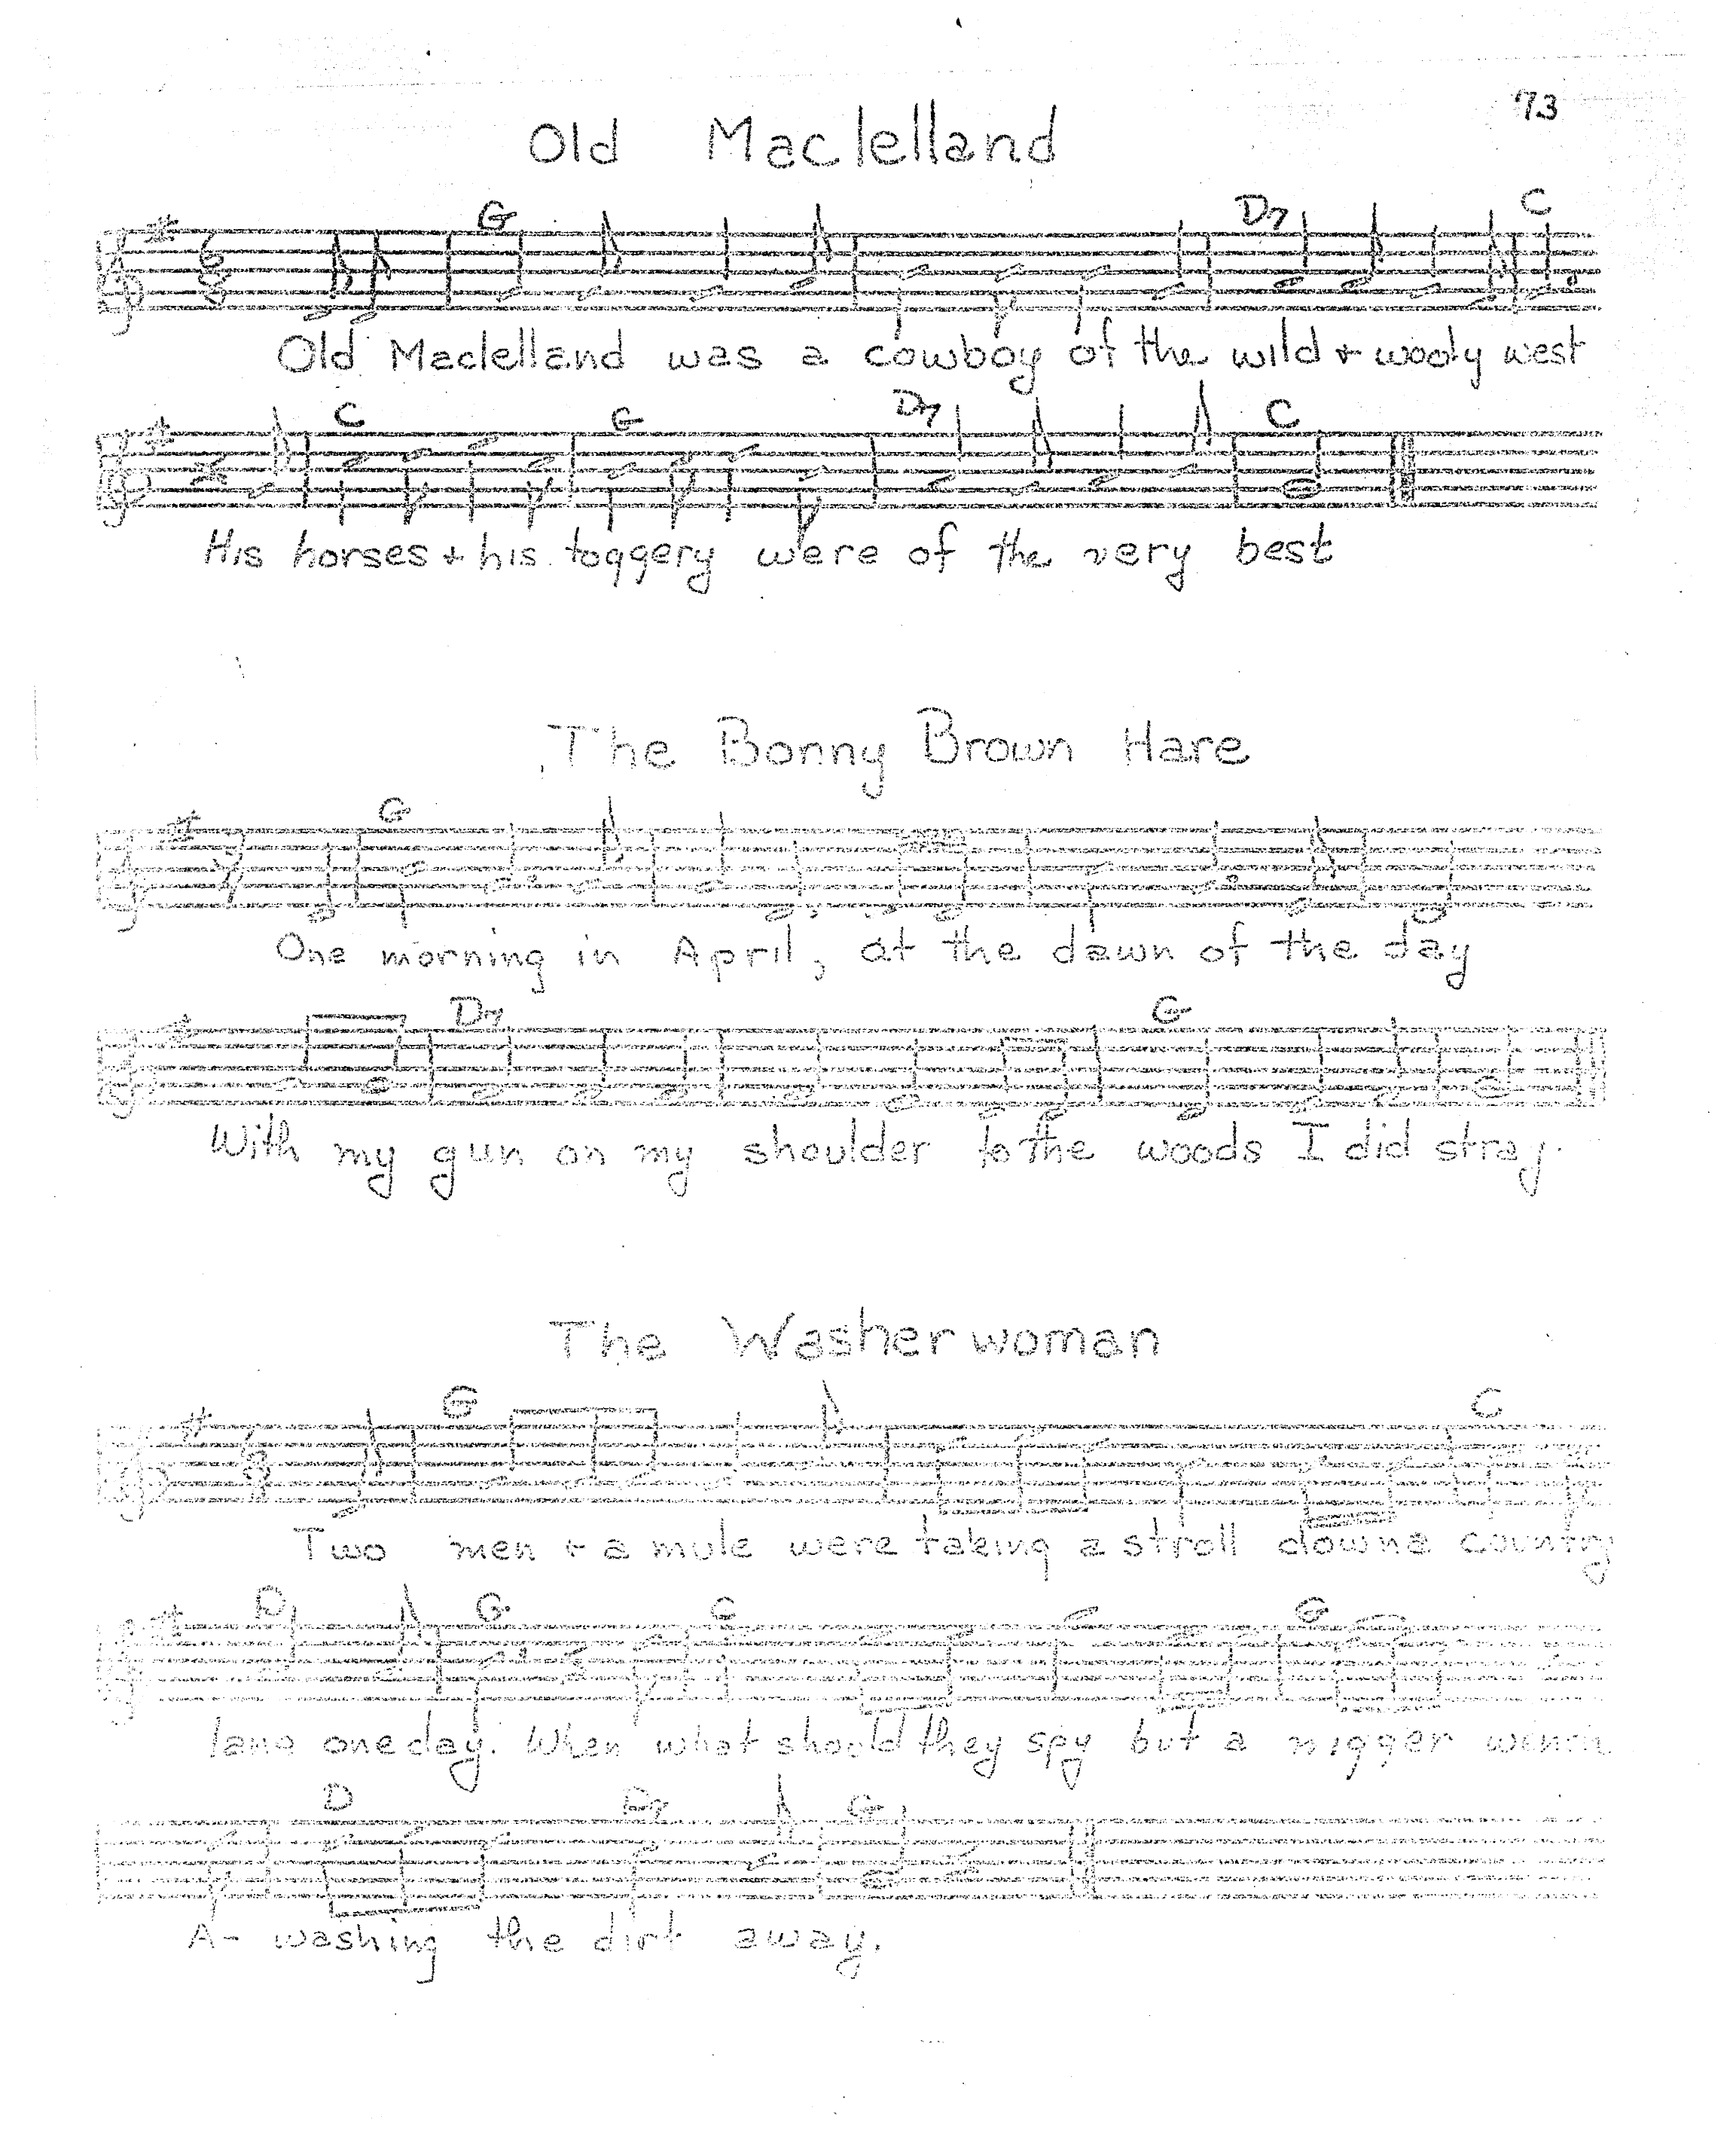 '73
Old Maclelland
G D7 C
Old Maclelland was a cowboy of the wild + wooly west
C G D7 C
His horses + his toggery were of the very best
The Bonny Brown Hare
G
One morning in April, at the dawn of the day
D7 G
With my gun on my shoulder to the woods I did stray.
The Washerwoman
G C
Two men + a mule were taking a stroll down a country
D G C G
lane one day. When what should they spy but a nigger wench
D D7 G
A- washing the dirt away.